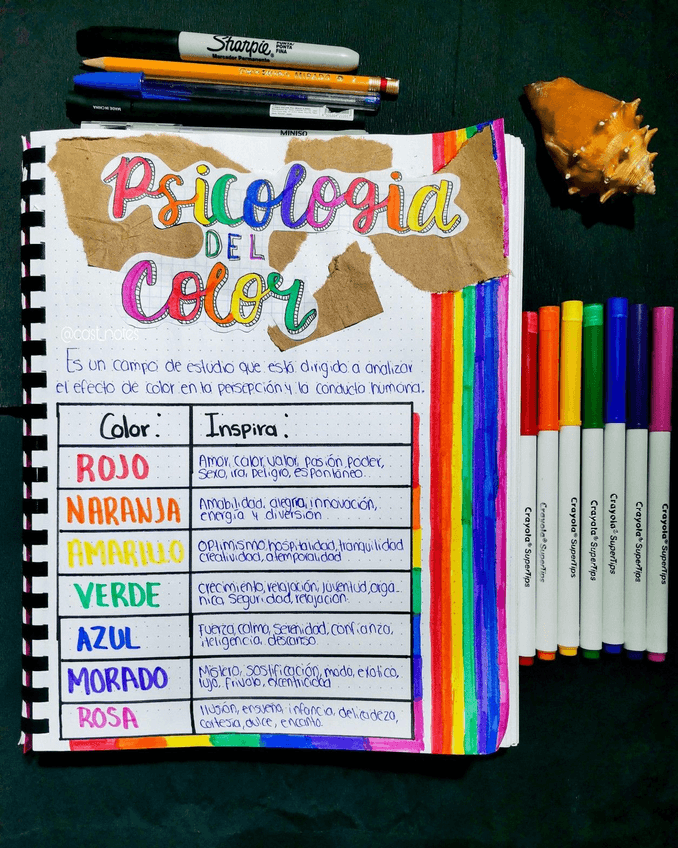 Sharpie
PUNTA
FINA
Marcador Permanente
MINISO
Psicologia
DEL
Color
@cost_notes
Es un campoi de estudio que está dirigido a analizar
el efecto de color en la persepción y la conducta humana.
Color: Inspira:
ROJO
Amor, calor, valor, pasión, poder,
sexo, ira, peligro, espontáneo.
NARANJA
Amabilidad, alegria, innovación,
energia y diversión
AMARILLO
Optimismo, hospitalidad, tranquilidad
creatividad, atemporalidad
VERDE
Crecimiento, relajación, juventud, orga-
nica, seguridad, relajación.
AZUL
Fuerza, calma, serenidad, confianza,
inteligencia, descanso
MORADO
Misterio, sostificación, moda, exotico,
lujo, frivolo, excentricidad
ROSA
Ilusión, ensueño, infancia, delicadeza,
cortesia, dulce, encanto.
Crayola® SuperTips
Crayola® SuperTips
Crayola® SuperTips
Crayola® SuperTips
Crayola® SuperTips
Crayola® SuperTips
Crayola® SuperTips